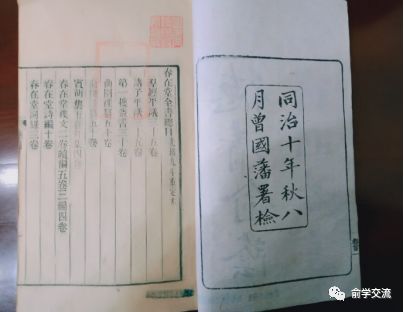 同治十年秋八
月曾國藩署檢
春在堂全書總目
羣經平議三十五卷
諸子平議三十五卷
第一樓叢書三十卷
曲園襍纂五十卷
五十卷
賓萌集
春在堂襍文二卷續編五卷三編四卷
春在堂詩編十卷
春在堂詞錄三卷
俞学交流